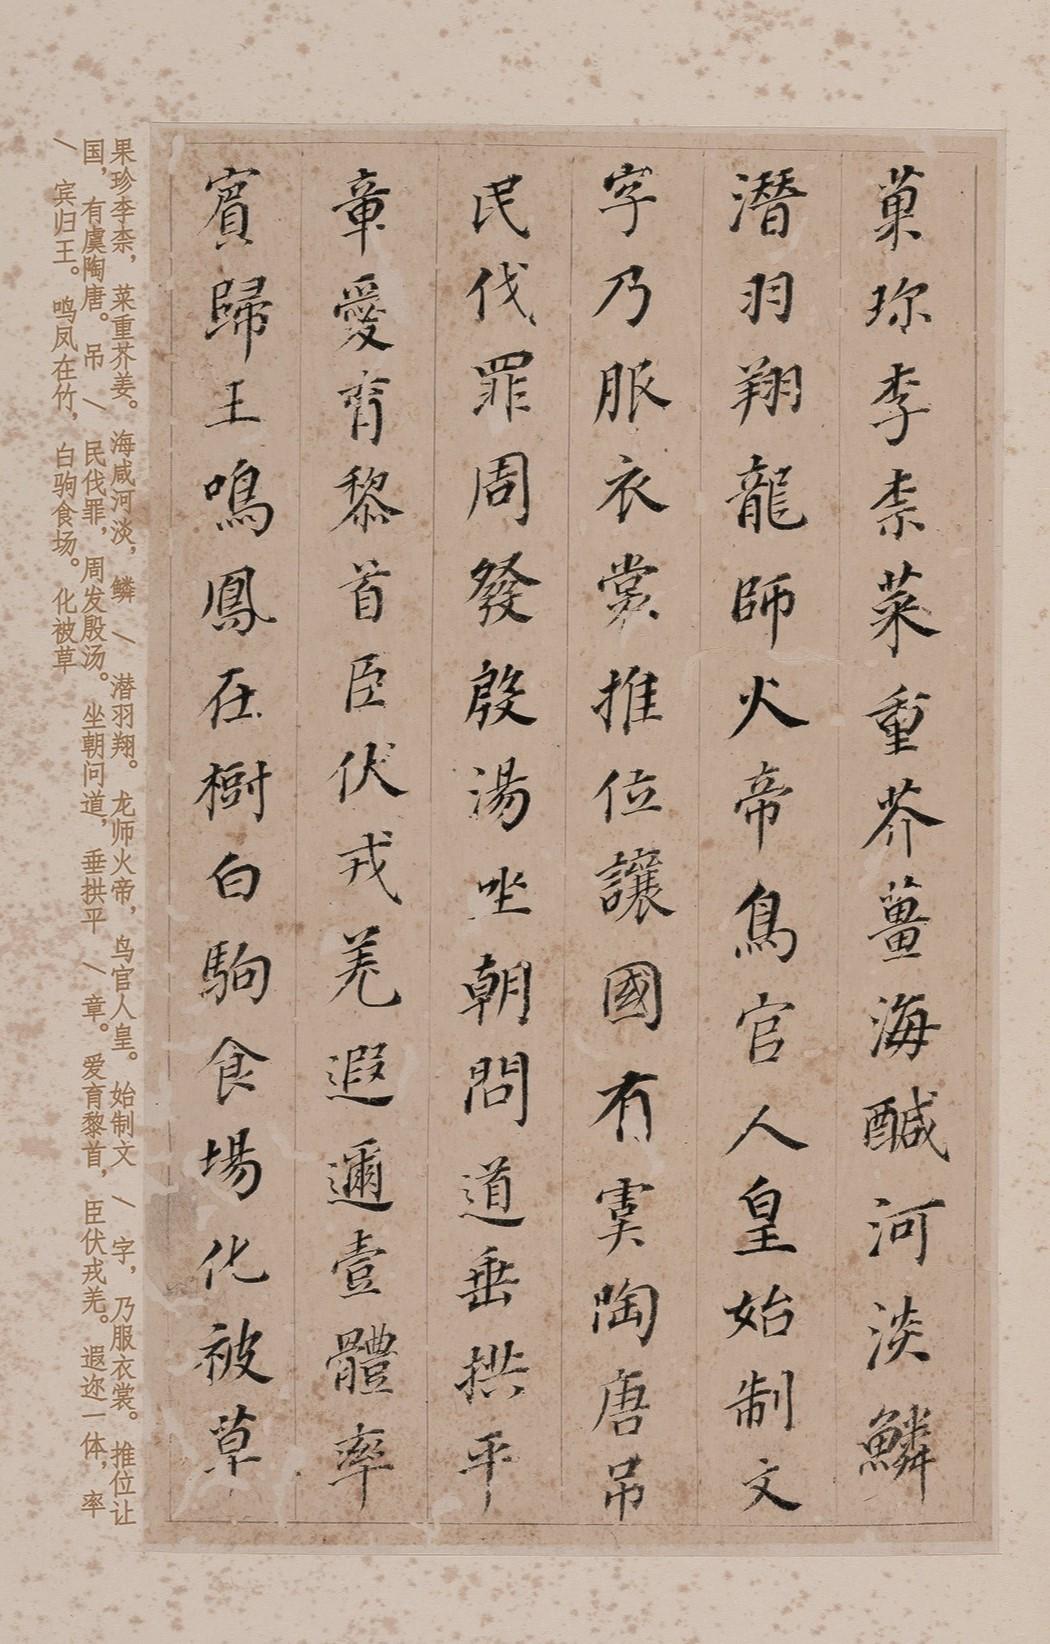 菓珎李柰菜重芥薑海醎河淡鱗
潛羽翔龍師火帝鳥官人皇始制文
字乃服衣裳推位讓國有虞陶唐吊
民伐罪周發殷湯坐朝問道垂拱平
章愛育黎首臣伏戎羌遐邇壹體率
賓歸王鳴鳳在樹白駒食場化被草
果珍李柰，菜重芥姜。海咸河淡，鳞 / 潜羽翔。龙师火帝，鸟官人皇。始制文 / 字，乃服衣裳。推位让
国，有虞陶唐。吊 / 民伐罪，周发殷汤。坐朝问道，垂拱平 / 章。爱育黎首，臣伏戎羌。遐迩一体，率
/ 宾归王。鸣凤在竹，白驹食场。化被草